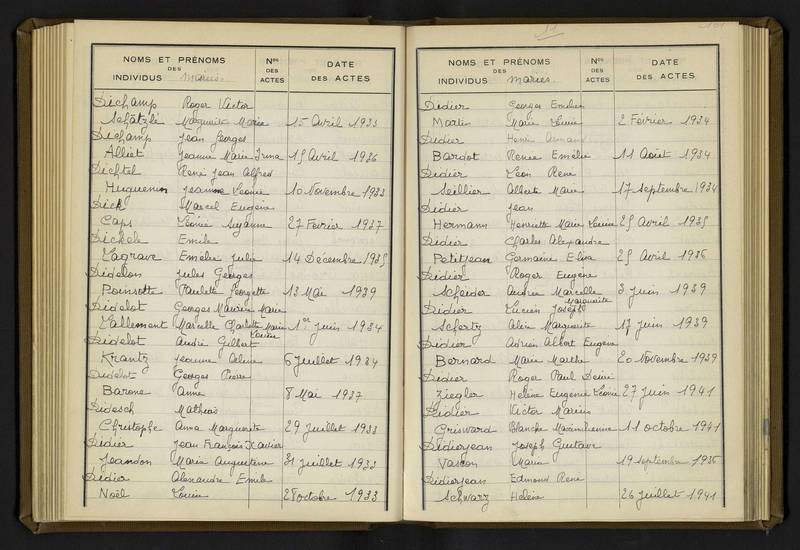 NOMS ET PRÉNOMS
DES
INDIVIDUS mariés.
Nos
DES
ACTES
DATE
DES ACTES
Dichamp Roger Victor
Schätzlé Marguerite Marie 15 Avril 1933
Dichamp Jean Georges
Alliet Jeanne Marie Irma 15 Avril 1936
Dichtel René Jean Alfred
Huguenin Jeanne Léonie 10 Novembre 1933
Dick Marcel Eugène
Caps Léonie Suzanne 27 Février 1937
Dickele Emile
Lagrave Emélie Julie 14 Décembre 1935
Didelon Jules Georges
Poinsotte Paulette Georgette 13 Mai 1939
Didelot Georges Maurice Marie
Lallement Marcelle Charlotte Marie Louise 1er Juin 1934
Didelot André Gilbert
Krantz Jeanne Céline 6 Juillet 1934
Didelot Georges Pierre
Barone Anne 8 Mai 1937
Didesch Mathias
Christophe Anna Marguerite 29 Juillet 1933
Didier Jean François Xavier
Jeandon Marie Augustine 31 Juillet 1933
Didier Alexandre Emile
Noël Louise 28 octobre 1933
NOMS ET PRÉNOMS
DES
INDIVIDUS mariés.
Nos
DES
ACTES
DATE
DES ACTES
Didier Georges Emilien
Martin Marie Louise 2 Février 1934
Didier Henri Armand
Bardot Renée Emélie 11 Août 1934
Didier Léon René
Seillier Alberte Marie 17 Septembre 1934
Didier Jean
Hermann Henriette Marie Louise 25 Avril 1935
Didier Charles Alexandre
Petitjean Germaine Elisa 25 Avril 1936
Didier Roger Eugène
Scheider Andrée Marcelle Marguerite 3 Juin 1939
Didier Lucien Joseph
Schertz Aline Marguerite 17 Juin 1939
Didier Adrien Albert Eugène
Bernard Marie Marthe 20 Novembre 1939
Didier Roger Paul Denis
Ziegler Hélène Eugénie Léonie 27 Juin 1941
Didier Victor Marius
Grisward Blanche Maximilienne 11 octobre 1941
Didierjean Joseph Gustave
Vasson Marie 19 septembre 1936
Didierjean Edmond René
Schwarz Hélène 26 Juillet 1941